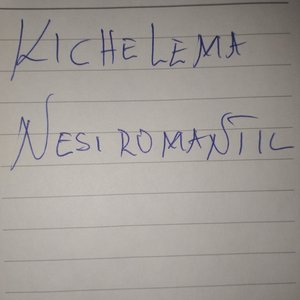 KICHELEMA
NESIROMANTIC